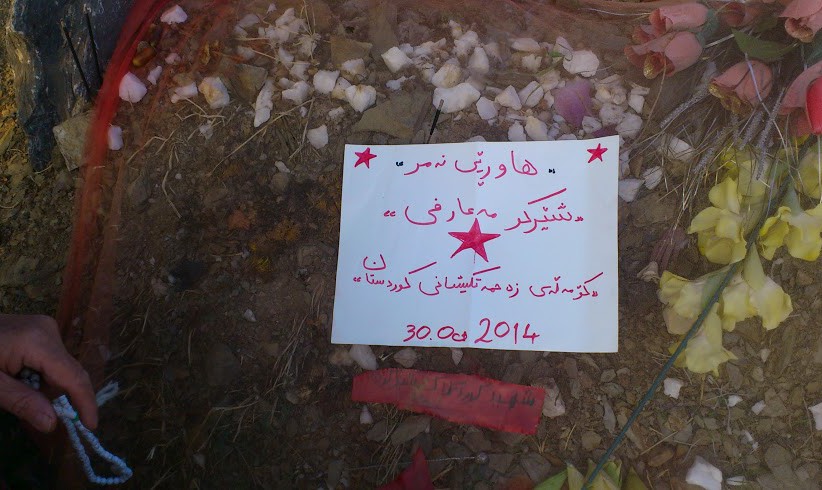 "هاوڕێی نەمر"
"شێرکۆ مەعارفی"
"کۆمەڵەی زەحمەتکێشانی کوردستان"
30.05 2014